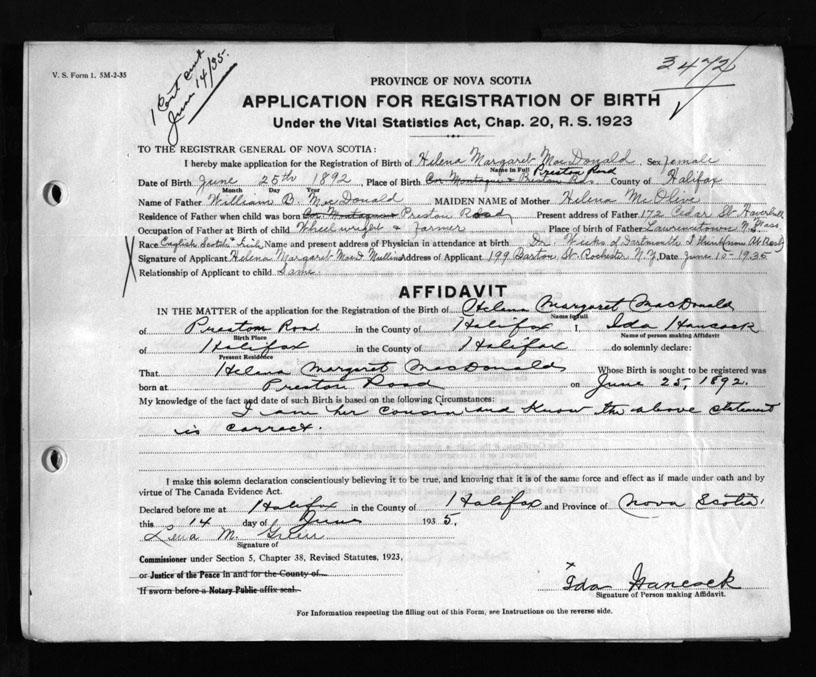 V. S. Form 1. 5M-2-35
1 Cert cut
June 14/35.
3472
PROVINCE OF NOVA SCOTIA
APPLICATION FOR REGISTRATION OF BIRTH
Under the Vital Statistics Act, Chap. 20, R. S. 1923
TO THE REGISTRAR GENERAL OF NOVA SCOTIA:
I hereby make application for the Registration of Birth of Helena Margaret MacDonald. Sex female
Name in Full Preston Road
Date of Birth June 25th 1892, Place of Birth Cor Montague & Preston Rds. County of Halifax
Month Day Year
Name of Father William B. MacDonald MAIDEN NAME of Mother Helena
Residence of Father when child was born Cor Montague Preston Road Present address of Father 172 Cedar St Haverhill Mass
Occupation of Father at Birth of child Wheelwright & Farmer Place of birth of Father Lawrencetown N.S.
Race English Scotch & Irish Name and present address of Physician in attendance at birth Dr. Weeks of Dartmouth I think
Signature of Applicant Helena Margaret MacD Mullin Address of Applicant 199 Barton St. Rochester N.Y. Date June 10 - 1935
Relationship of Applicant to child Same.
AFFIDAVIT
IN THE MATTER of the application for the Registration of the Birth of Helena Margaret MacDonald
Name in full
of Preston Road in the County of Halifax I, Ida Hancock
Birth Place Name of person making Affidavit
of Halifax in the County of Halifax do solemnly declare:
Present Residence
That Helena Margaret MacDonald Whose Birth is sought to be registered was
born at Preston Road on June 25 1892.
My knowledge of the fact and date of such Birth is based on the following Circumstances:
I am her cousin and know the above statement
is correct.
I make this solemn declaration conscientiously believing it to be true, and knowing that it is of the same force and effect as if made under oath and by
virtue of The Canada Evidence Act.
Declared before me at Halifax in the County of Halifax and Province of Nova Scotia,
this 14 day of June 1935,
Lena M.
Signature of
Commissioner under Section 5, Chapter 38, Revised Statutes, 1923,
or Justice of the Peace in and for the County of
If sworn before a Notary Public affix seal.
x Ida Hancock
Signature of Person making Affidavit.
For Information respecting the filling out of this Form, see Instructions on the reverse side.